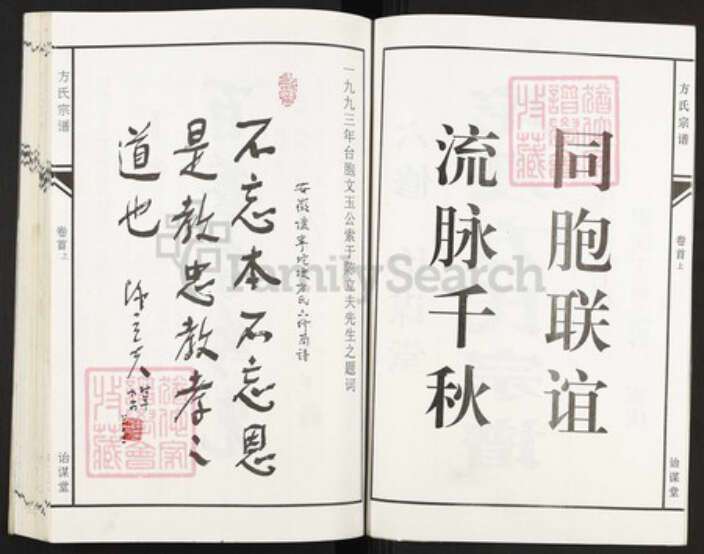 方氏宗谱
卷首上
诒谋堂
同胞联谊
流脉千秋
一九九三年台胞文玉公索于陈立夫先生之题词
安徽怀宁坨埂方氏六修宗谱
不忘本不忘恩
是教忠教孝之
道也
陈立夫
方氏宗谱
卷首上
诒谋堂
FamilySearch